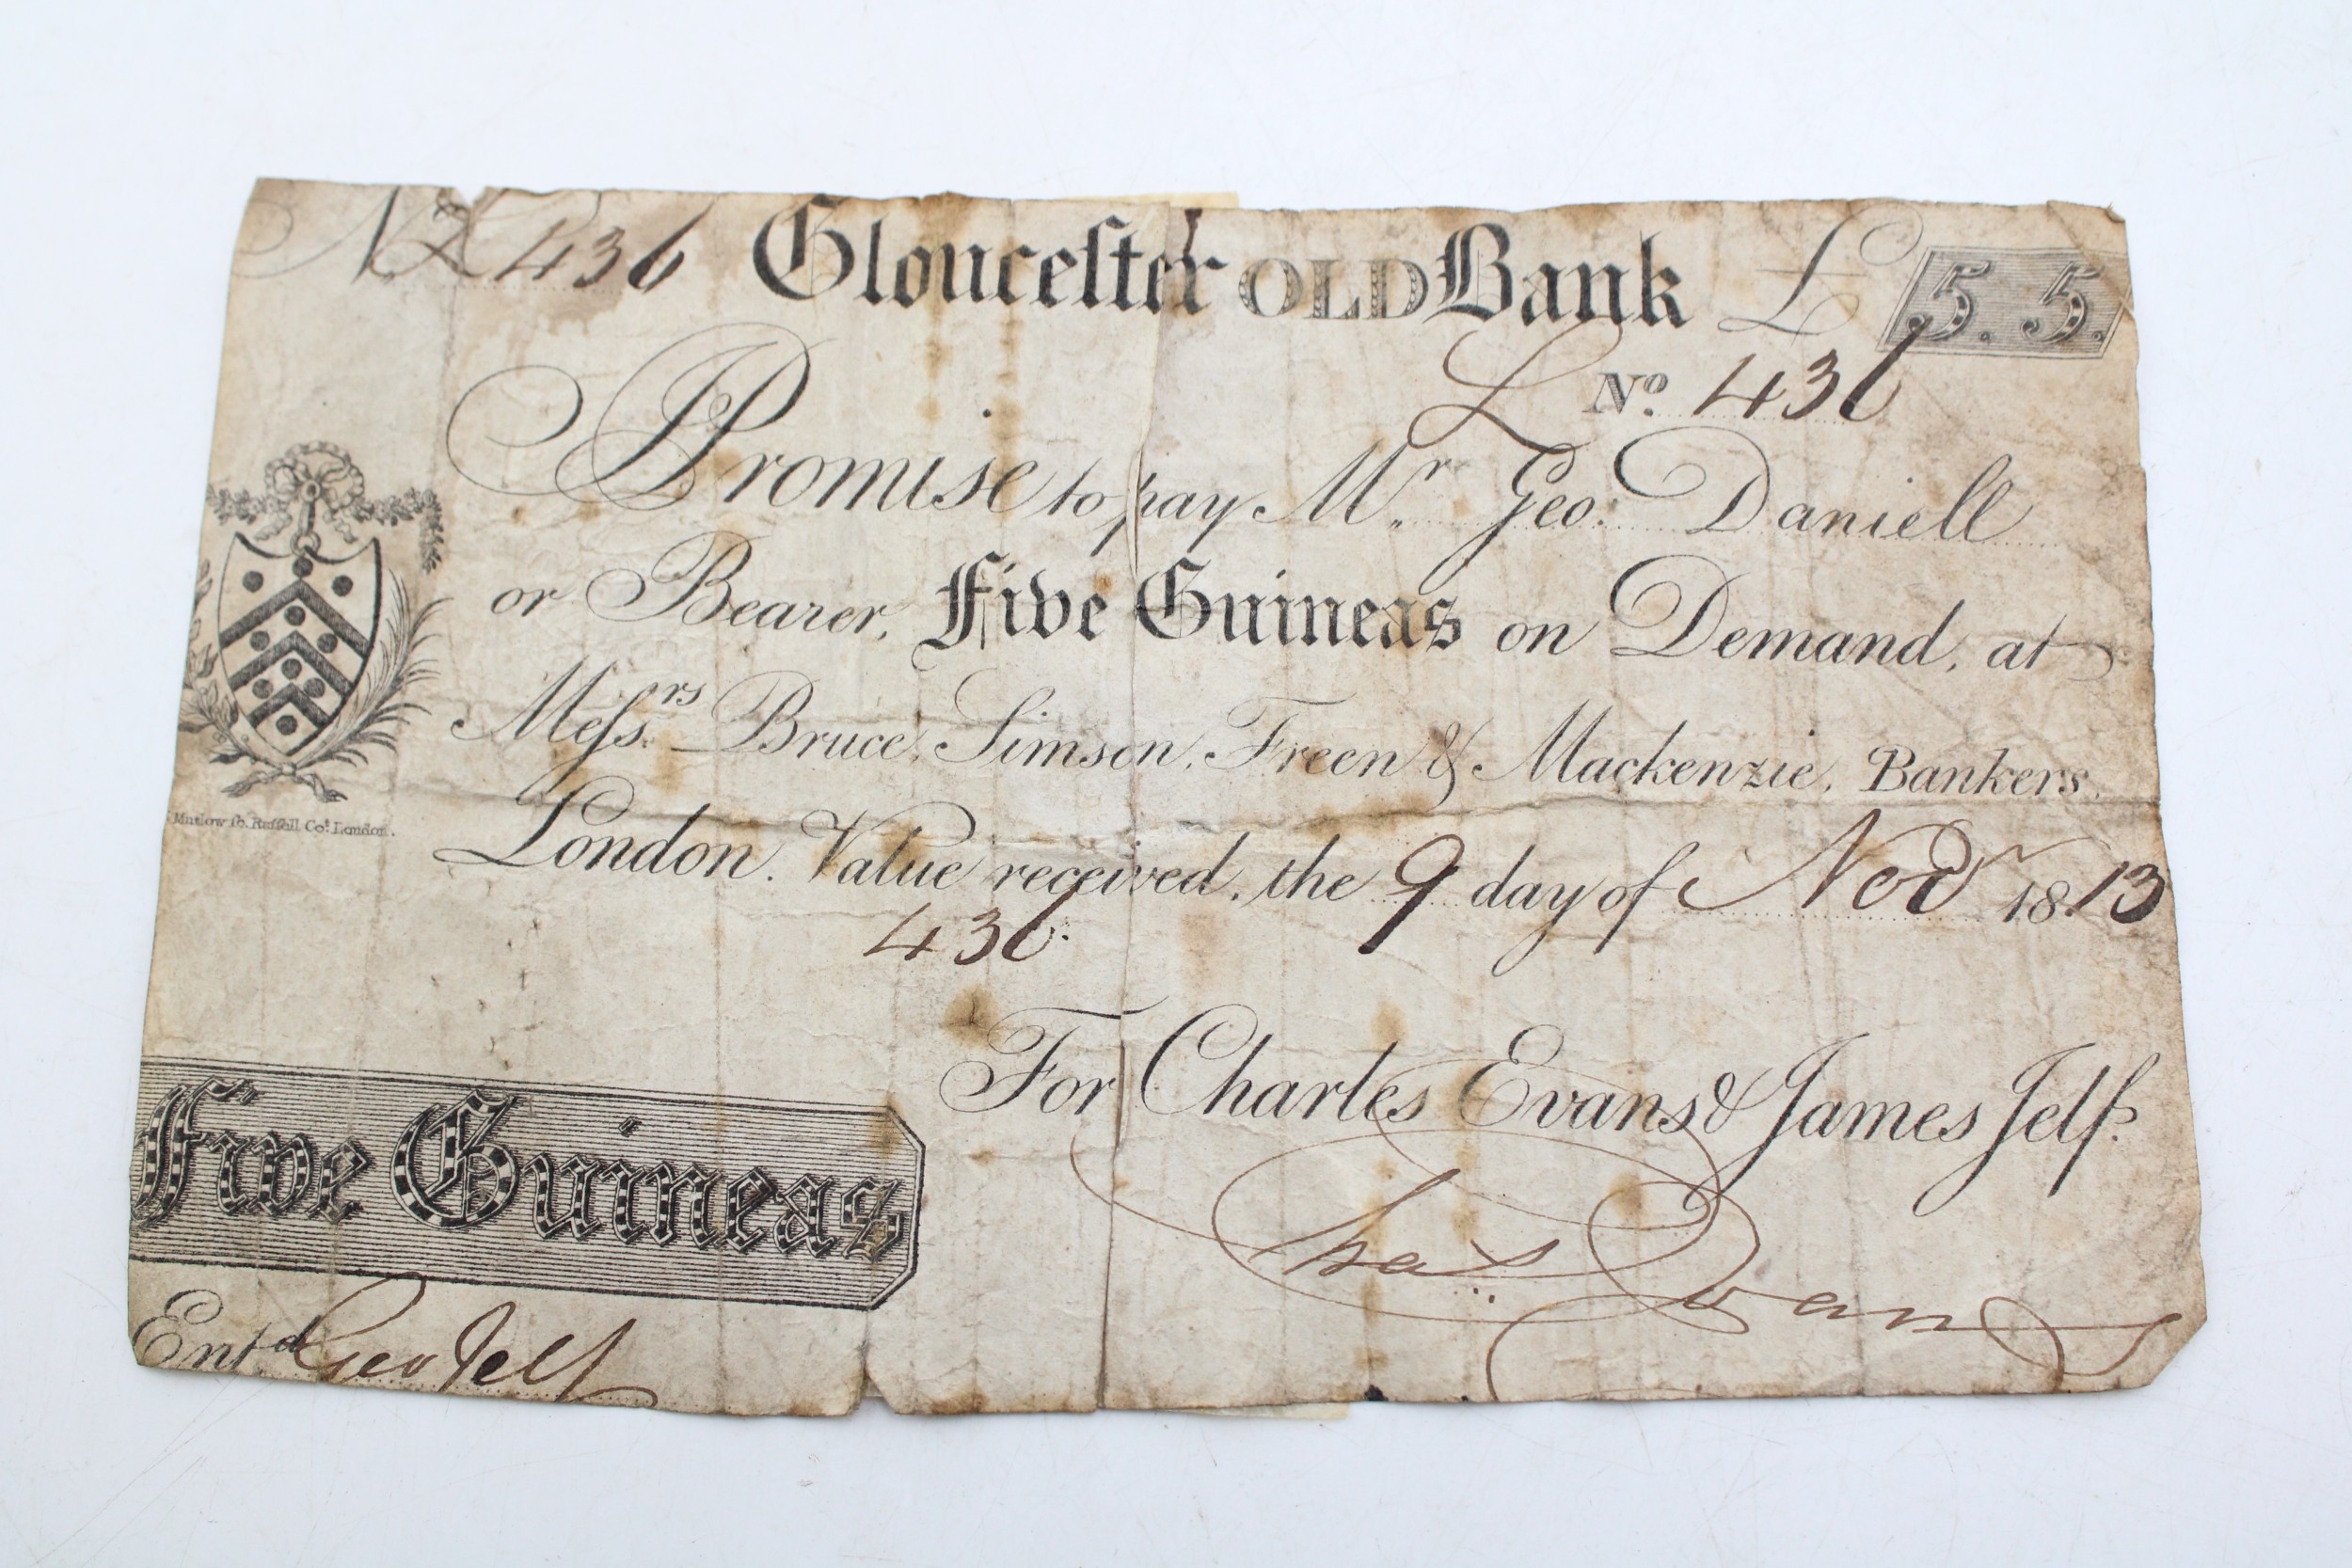 No L436 Gloucester OLD Bank £ 5. 5.
L No. 436
I Promise to pay Mr. Geo: Daniell
or Bearer, Five Guineas on Demand, at
Messrs. Bruce, Simson, Freen & Mackenzie, Bankers,
London. Value received, the 9 day of Novr 1813
436
Mutlow sc. Russell Cot. London.
For Charles Evans & James Jelf.
Five Guineas
Chas Evans
Entd Geo Jelf